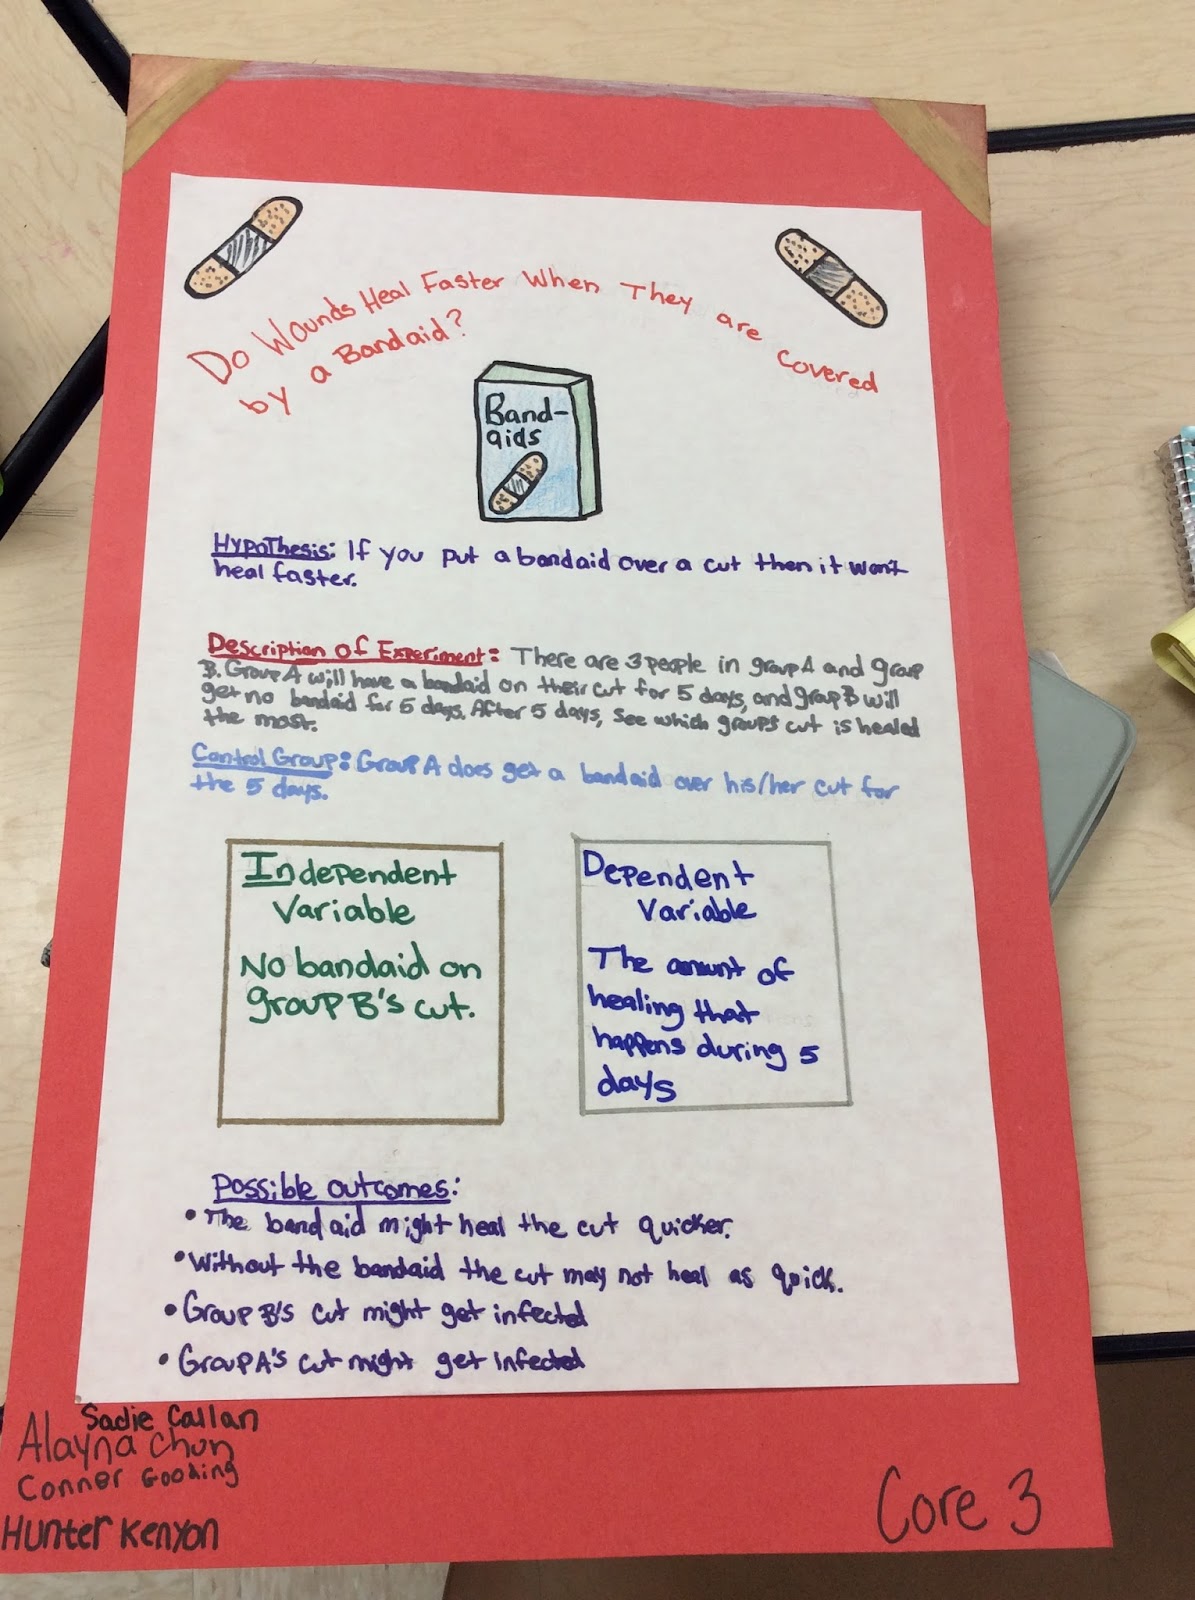 Do Wounds Heal Faster When They are covered
by a Bandaid?
Band-
aids
Hypothesis: If you put a bandaid over a cut then it won't
heal faster.
Description of Experiment: There are 3 people in group A and group
B. Group A will have a bandaid on their cut for 5 days, and group B will
get no bandaid for 5 days. After 5 days, see which groups cut is healed
the most.
Control Group: Group A does get a bandaid over his/her cut for
the 5 days.
Independent
Variable
No bandaid on
group B's cut.
Dependent
Variable
The amount of
healing that
happens during 5
days
Possible outcomes:
• The bandaid might heal the cut quicker.
• Without the bandaid the cut may not heal as quick.
• Group B's cut might get infected
• Group A's cut might get infected
Sadie Callan
Alayna Chun
Conner Gooding
Hunter Kenyon
Core 3